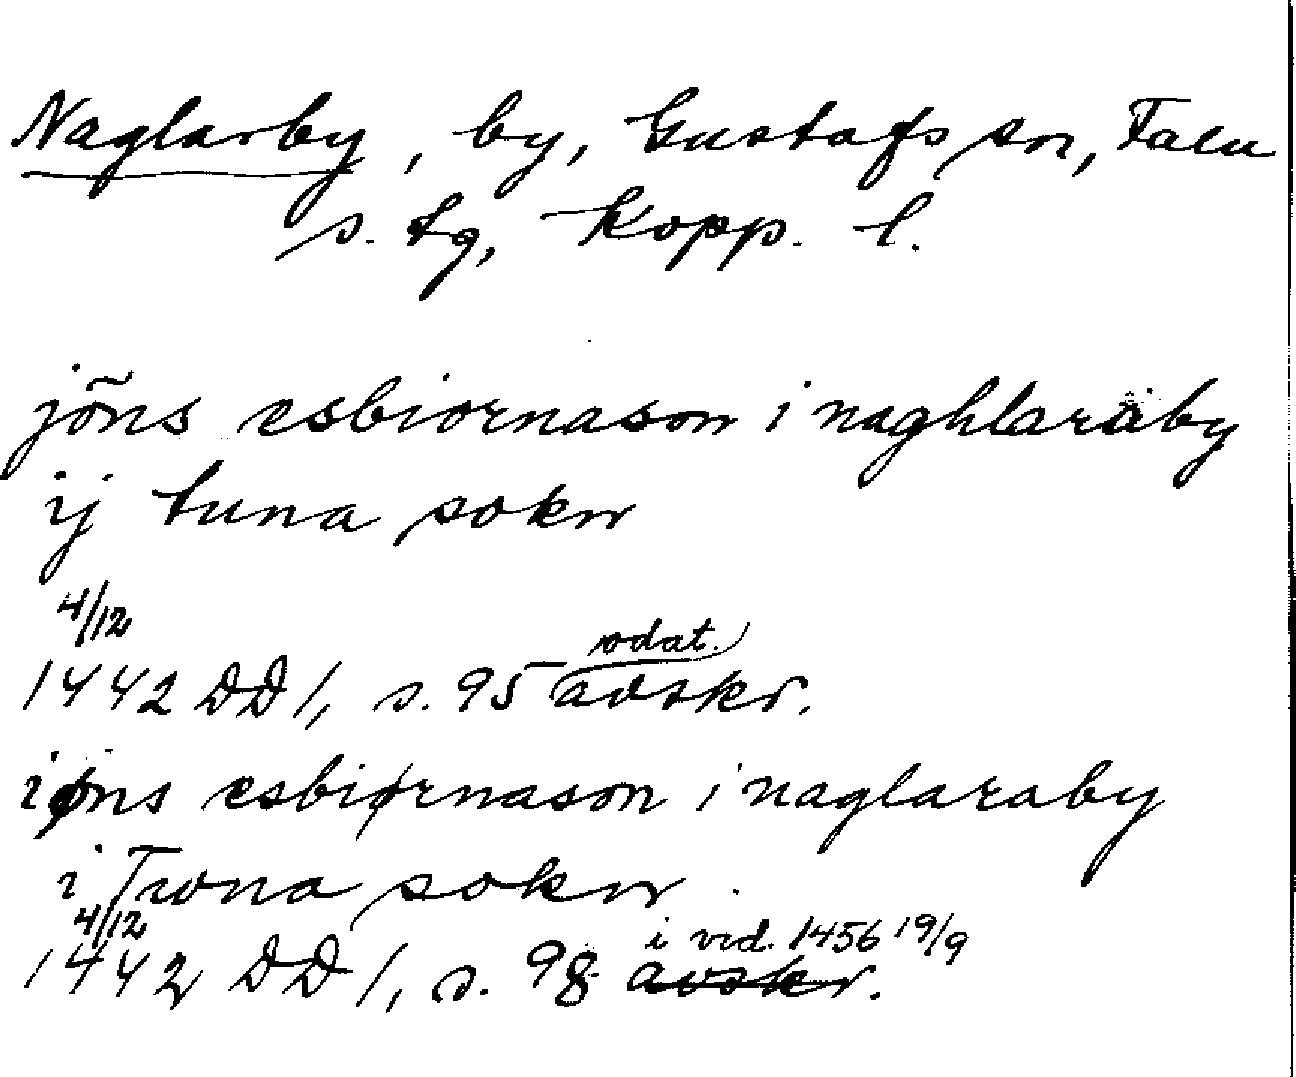 Naglarby, by, Gustafs sn, Falu
s. tg, Kopp. l.
jöns esbiornason i naghlaräby
ij tuna sokn
4/12
odat.
1442 DD 1, s. 95 avskr.
iøns esbiørnason i naglaraby
i Twna sokn.
4/12
i vid. 1456 19/9
1442 DD 1, s. 98 avskr.